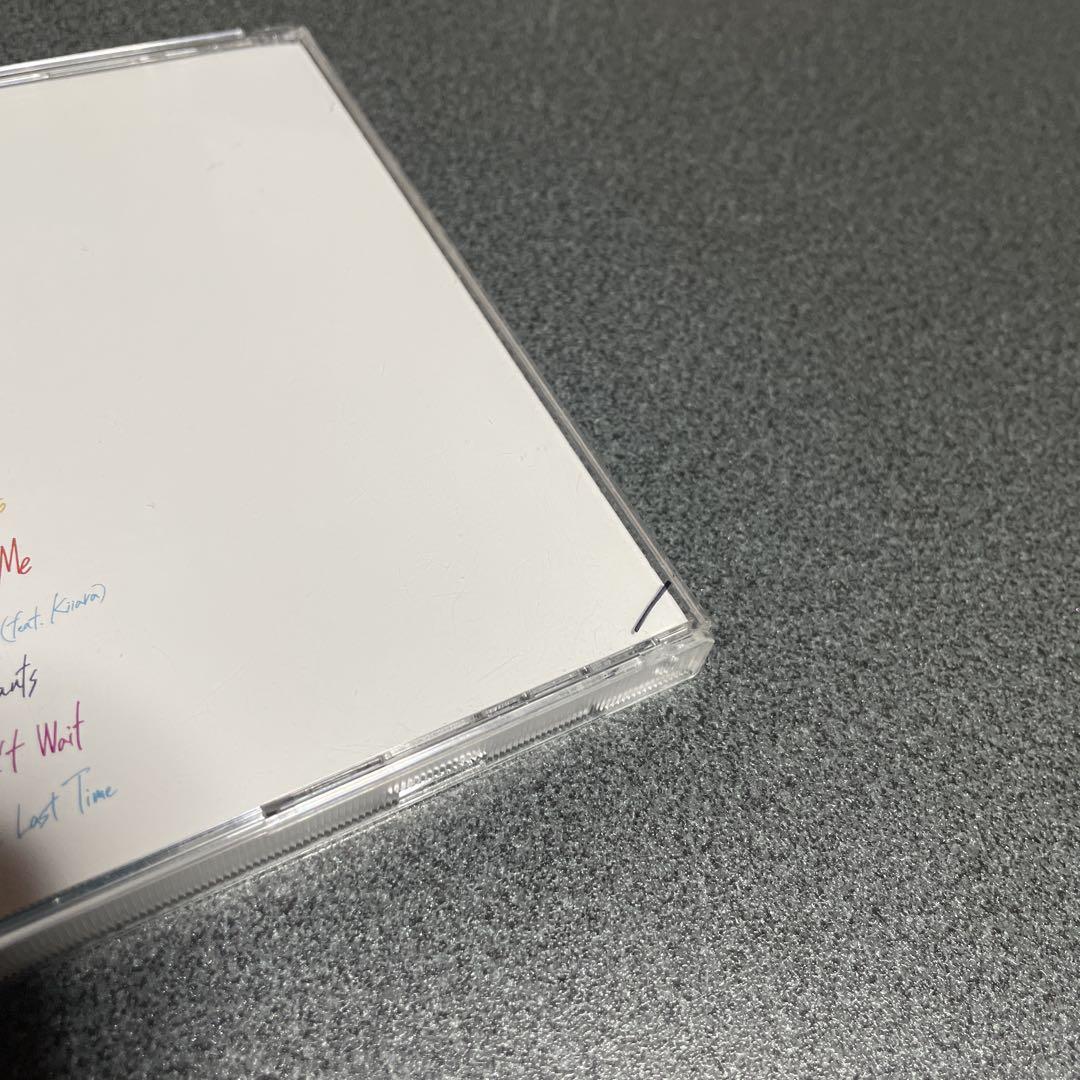 Me
(feat. Kiiara)
ants
't Wait
Last Time